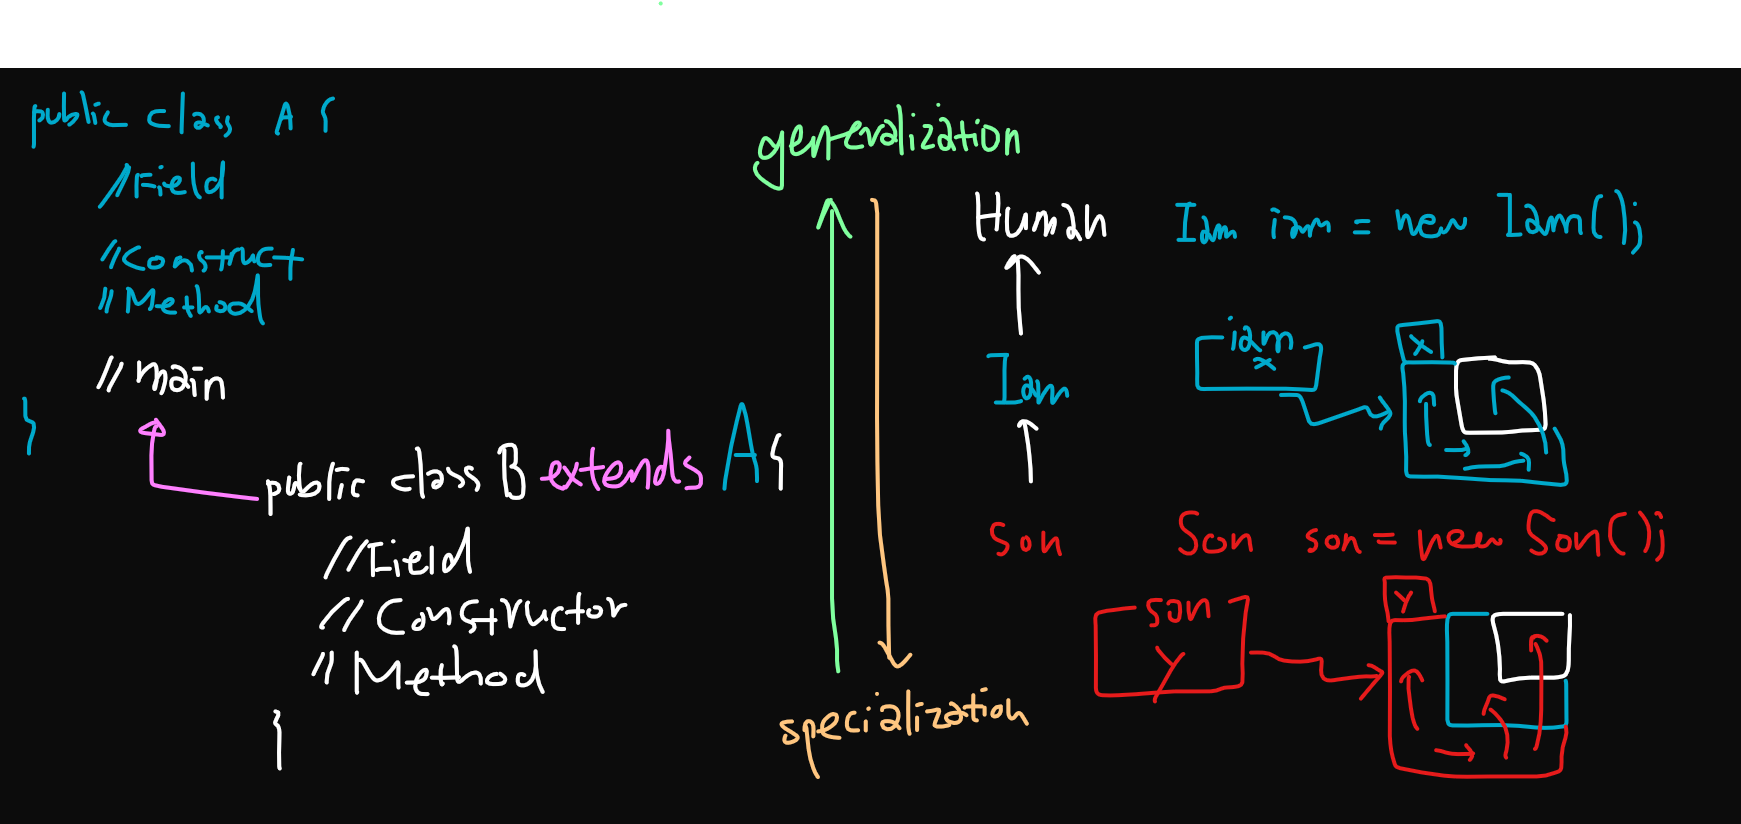 public class A {
//Field
//Construct
//Method
//main
}
public class B extends A {
//Field
//Constructor
//Method
}
generalization
specialization
Human
Iam
Son
Iam iam = new Iam();
iam
x
x
Son son = new Son();
son
y
y